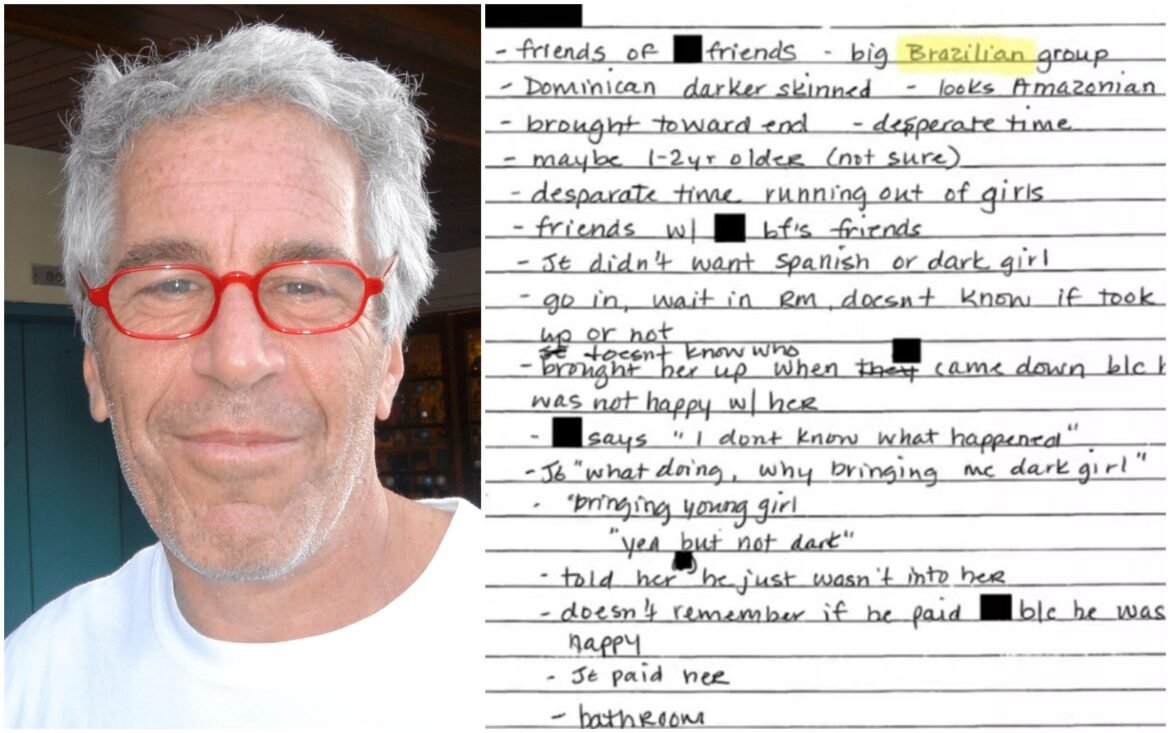 - friends of friends - big Brazilian group
- Dominican darker skinned - looks Amazonian
- brought toward end - desperate time
- maybe 1-2yr older (not sure)
- desparate time running out of girls
- friends w/ bf's friends
- JE didn't want spanish or dark girl
- go in, wait in Rm, doesnt know if took
up or not
doesnt know who
- brought her up when they came down b/c h
was not happy w/ her
- says "I dont know what happened"
- JE "what doing, why bringing me dark girl"
- "bringing young girl
"yea but not dark"
- told her he just wasn't into her
- doesn't remember if he paid b/c he was
happy
- JE paid her
- bathroom